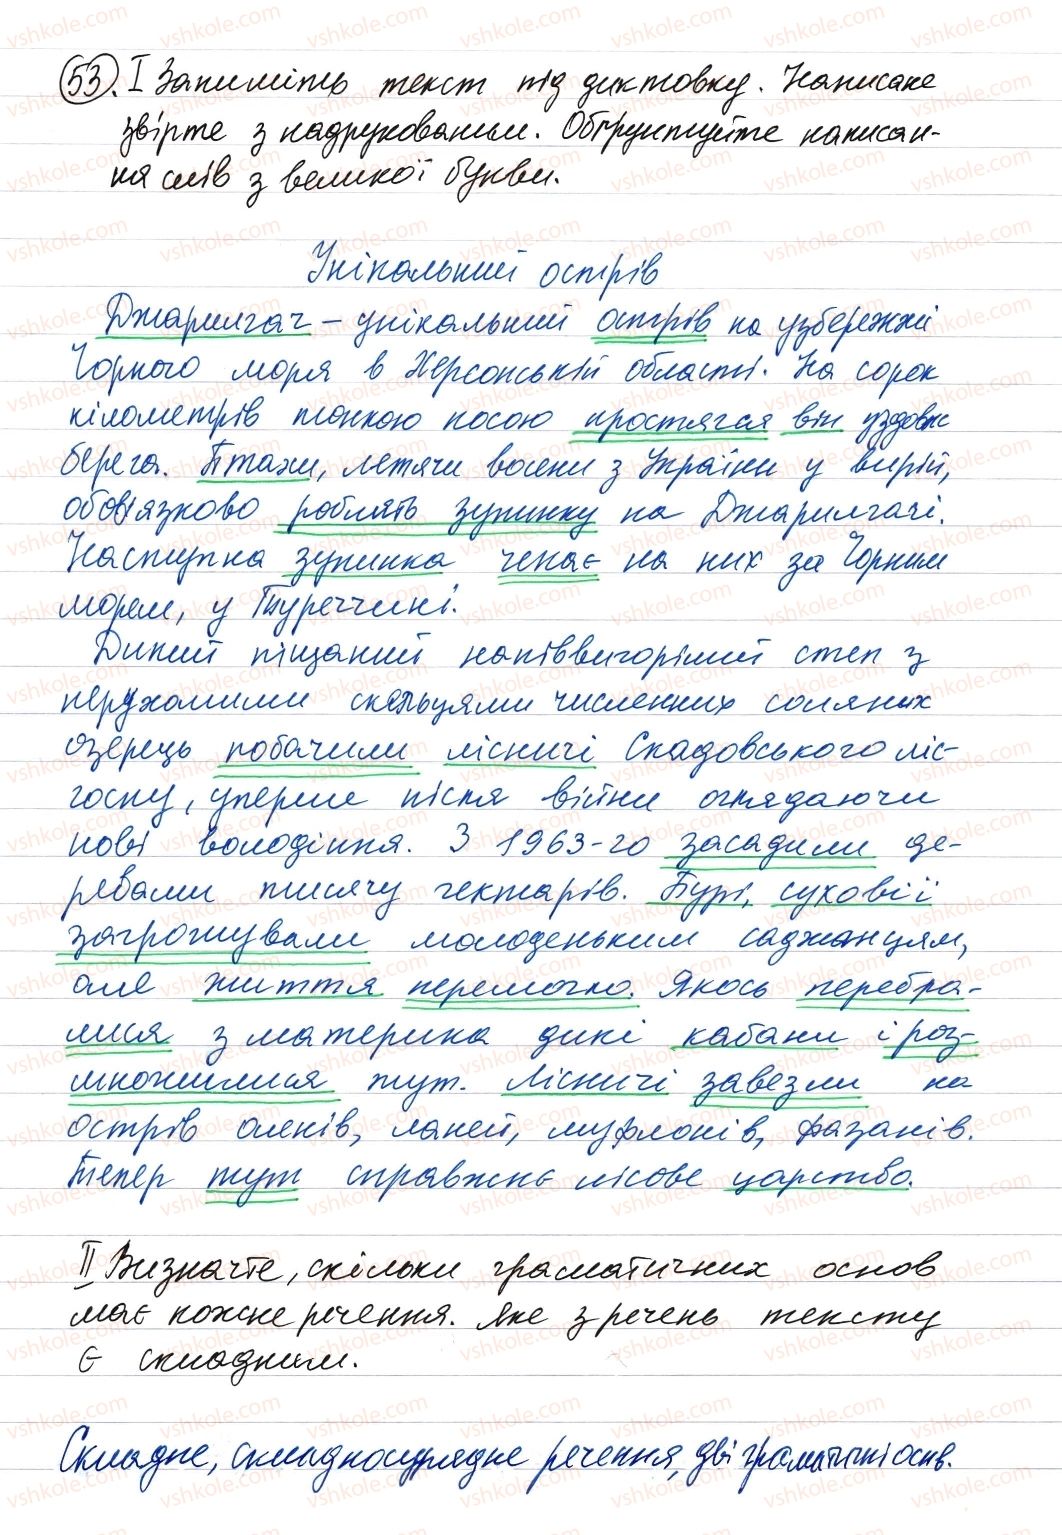 53. I Запишіть текст під диктовку. Написане
звірте з надрукованим. Обґрунтуйте написан-
ня слів з великої букви.
Унікальний острів
Джарилгач – унікальний острів на узбережжі
Чорного моря в Херсонській області. На сорок
кілометрів тонкою косою простягся він уздовж
берега. Птахи, летячи восени з України у вирій,
обов'язково роблять зупинку на Джарилгачі.
Наступна зупинка чекає на них за Чорним
морем, у Туреччині.
Дикий піщаний напіввигорілий степ з
нерухомими скельцями численних соляних
озерець побачили лісничі Скадовського ліс-
госпу, уперше після війни оглядаючи
нові володіння. З 1963-го засадили де-
ревами тисячу гектарів. Бурі, суховії
загрожували молоденьким саджанцям,
але життя перемогло. Якось перебра-
лися з материка дикі кабани і роз-
множилися тут. Лісничі завезли на
острів оленів, ланей, муфлонів, фазанів.
Тепер тут справжнє лісове царство.
II Визначте, скільки граматичних основ
має кожне речення. Яке з речень тексту
є складним.
Складне, складносурядне речення, дві граматичні оснв.